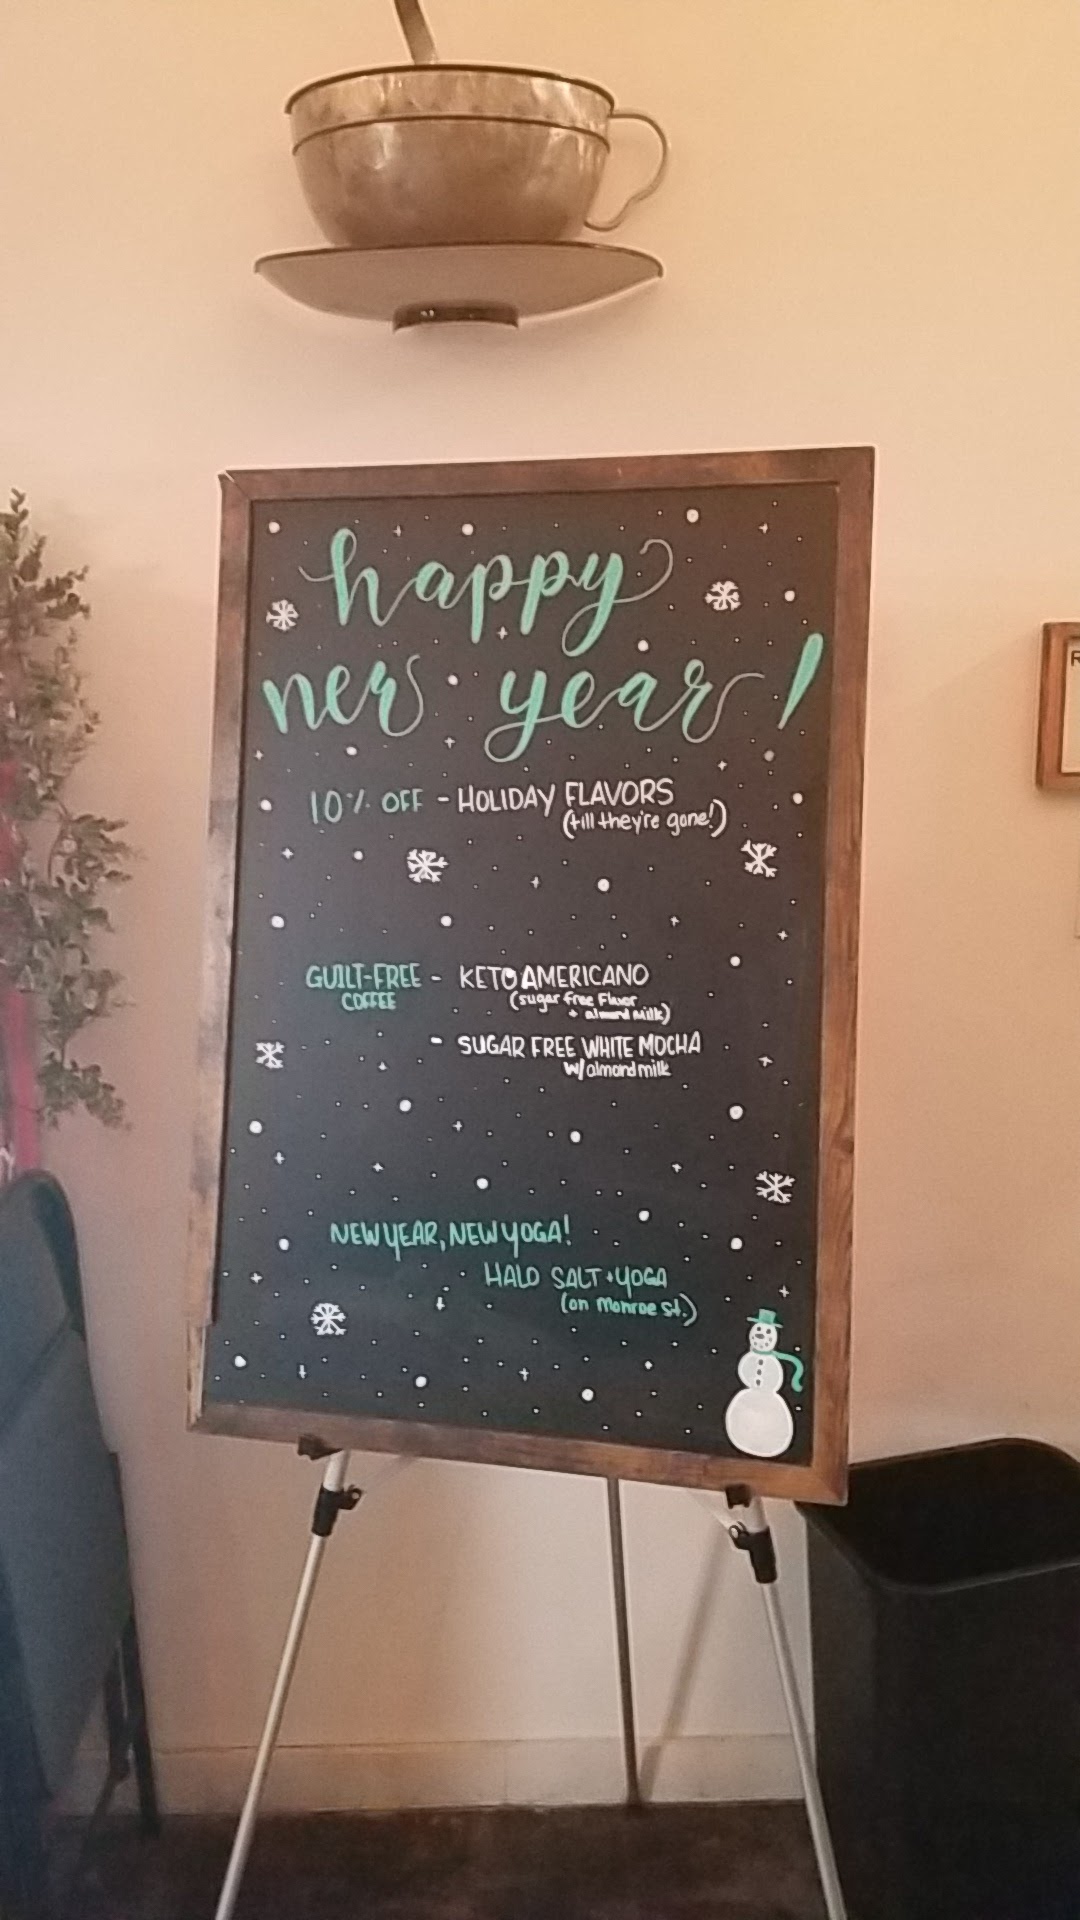 happy
new year!
10% OFF - HOLIDAY FLAVORS
(till they're gone!)
GUILT-FREE - KETO AMERICANO
COFFEE (sugar free Flavor
+ almond milk)
- SUGAR FREE WHITE MOCHA
w/ almond milk
NEW YEAR, NEW YOGA!
HALO SALT + YOGA
(on Monroe St.)
R